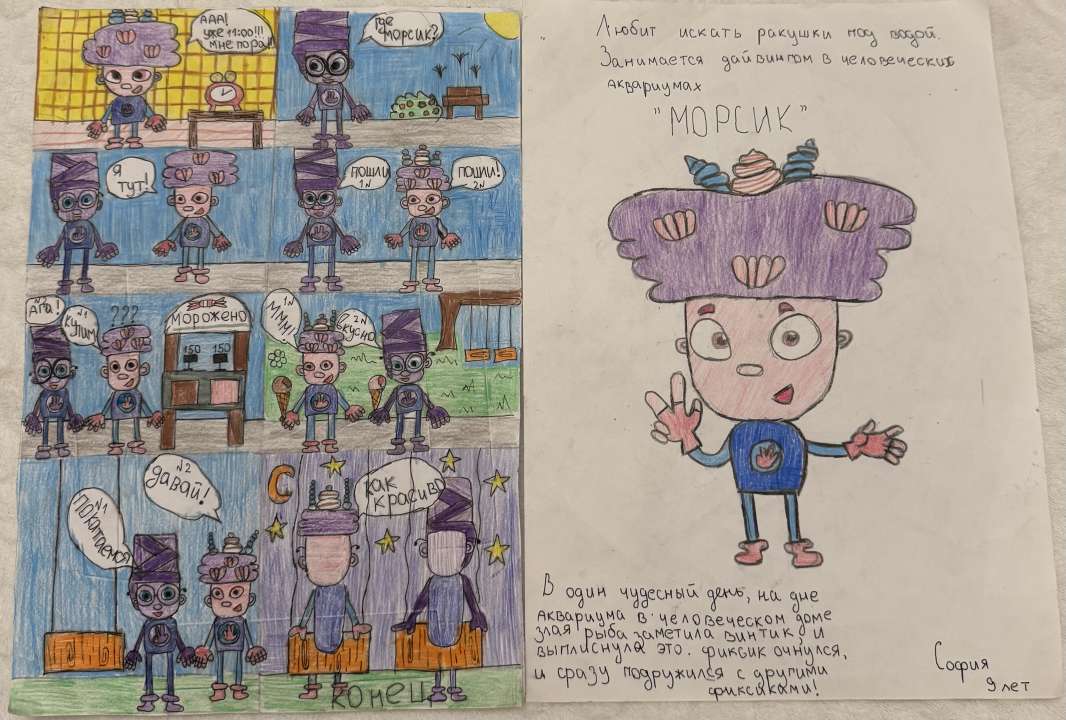 ААА!
уже 11:00!!!
мне пора!!
Где
морсик?
Я
тут!
пошли
1N
пошли!
2N
N2
Ага!
N1
купим
???
морожено
150 150
1N
МММ!
2N
вкусно
N1
покатаемся
N2
давай!
как
красиво
конец
Любит искать ракушки под водой.
Занимается дайвингом в человеческих
аквариумах
"МОРСИК"
В один чудесный день, на дне
аквариума в человеческом доме
злая рыба заметила винтик, и
выплиснула это. фиксик очнулся,
и сразу подружился с другими
фиксиками!
София
9 лет